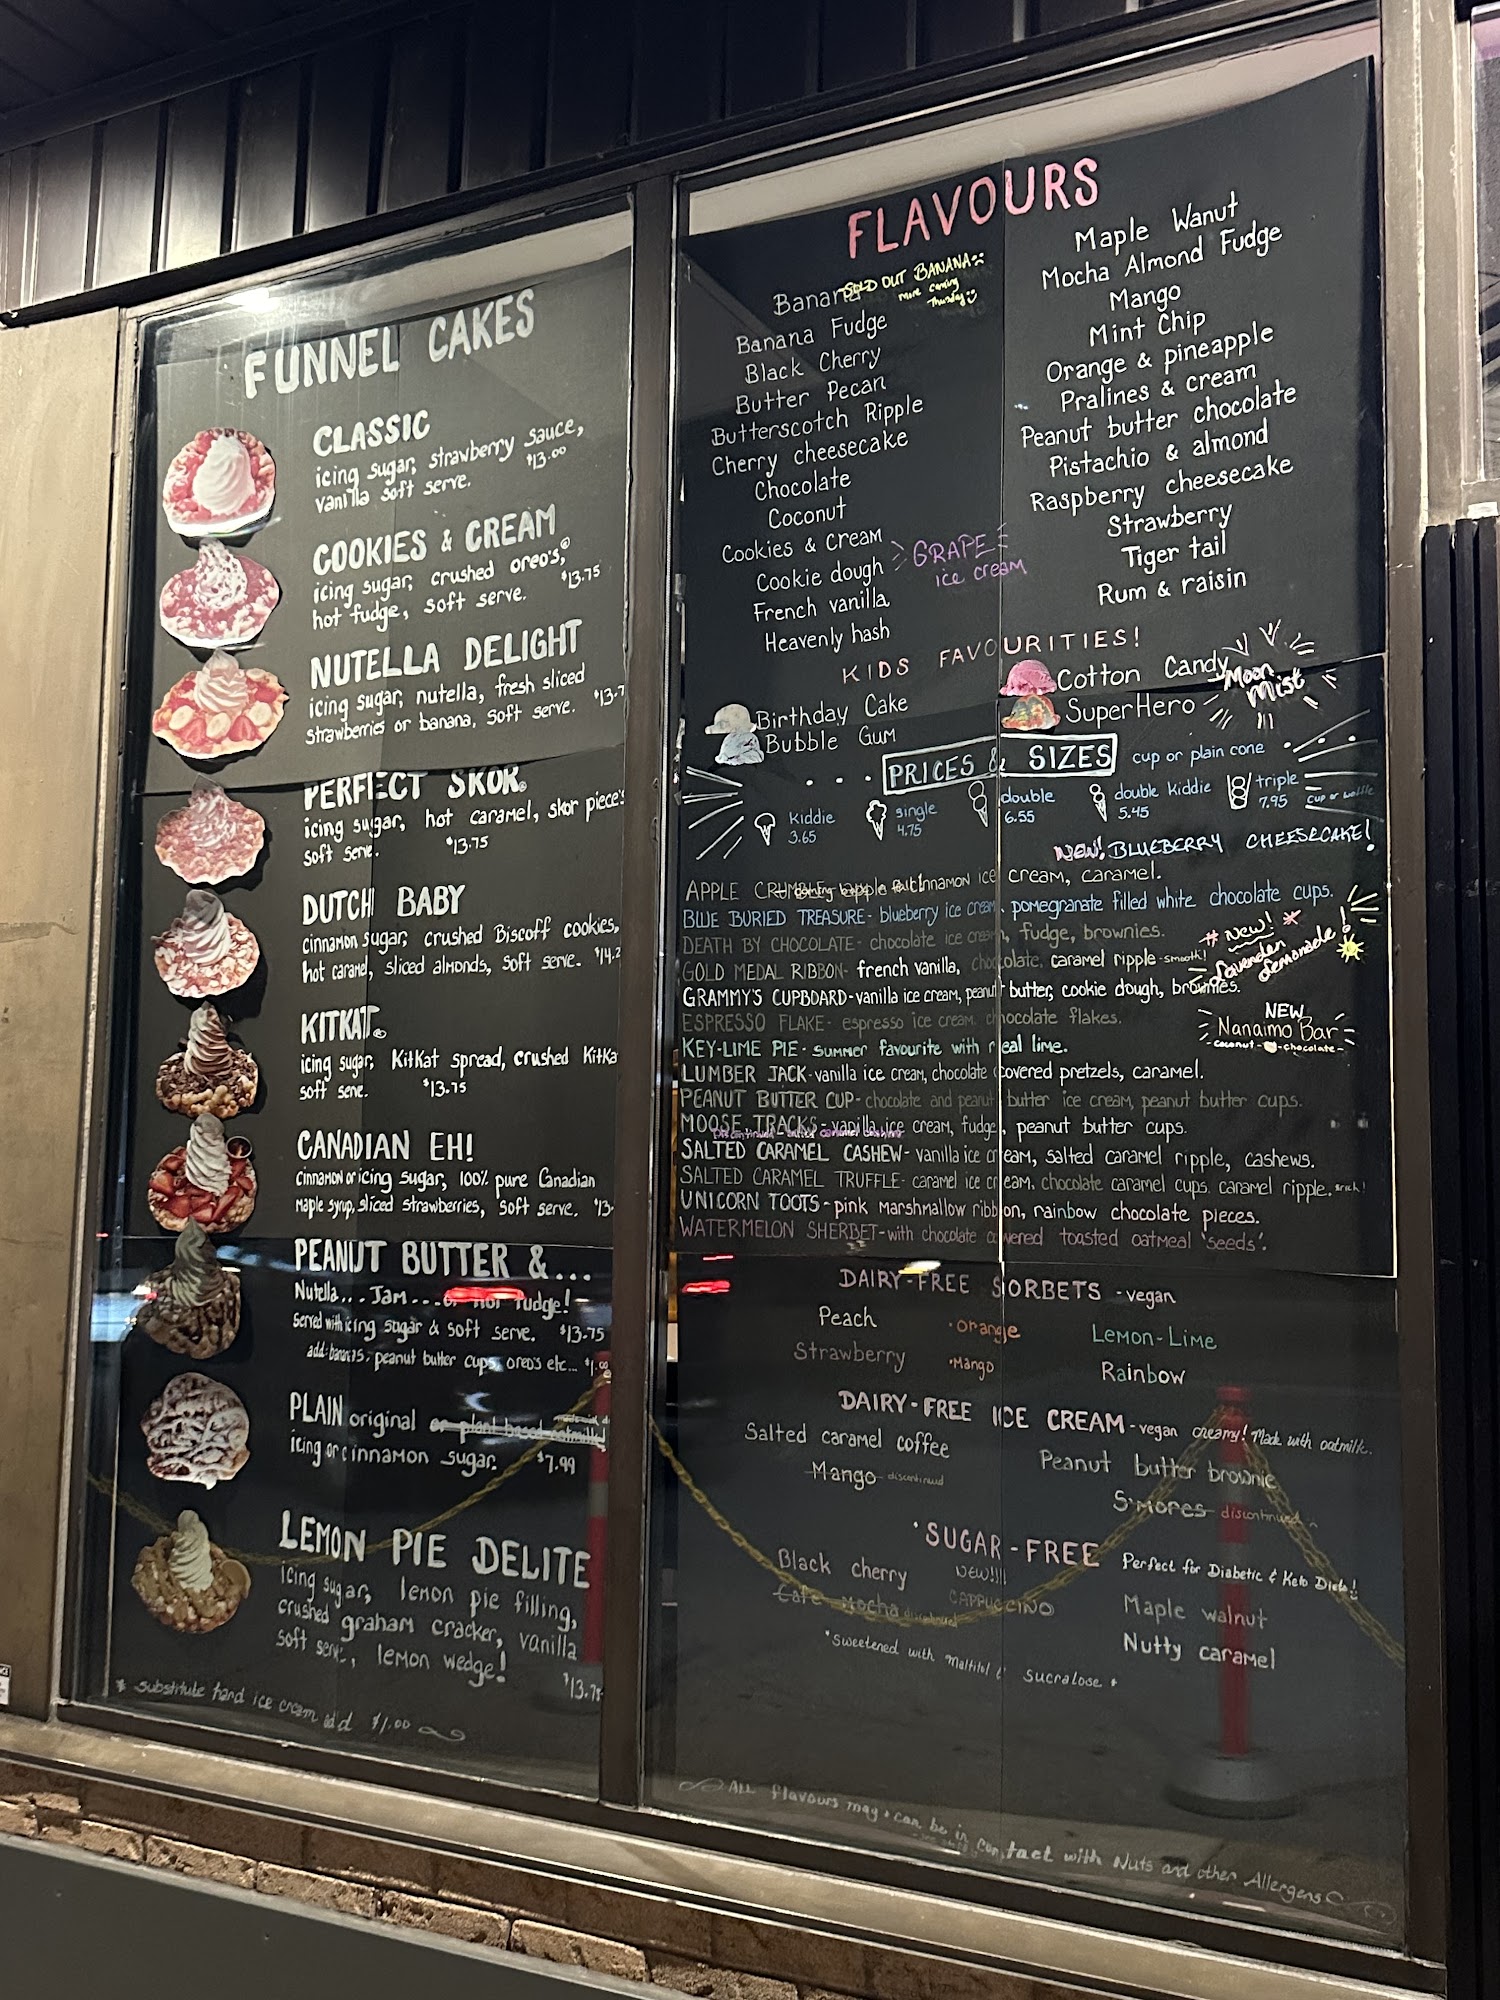 FUNNEL CAKES
CLASSIC
icing sugar, strawberry sauce,
vanilla soft serve. $13.00
COOKIES & CREAM
icing sugar, crushed oreo's,®
hot fudge, soft serve. $13.75
NUTELLA DELIGHT
icing sugar, nutella, fresh sliced
strawberries or banana, soft serve. $13.7
PERFECT SKOR®
icing sugar, hot caramel, skor piece's
soft serve. $13.75
DUTCH BABY
cinnamon sugar, crushed Biscoff cookies,
hot caramel, sliced almonds, soft serve. $14.2
KITKAT®
icing sugar, KitKat spread, crushed KitKa
soft serve. $13.75
CANADIAN EH!
cinnamon or icing sugar, 100% pure Canadian
Maple syrup, sliced strawberries, soft serve. $13.
PEANUT BUTTER &...
Nutella... Jam... or hot fudge!
served with icing sugar & soft serve. $13.75
add: bananas, peanut butter cups, oreo's etc... $1.00
PLAIN original or plant based oatmilk
icing or cinnamon sugar. $7.99
LEMON PIE DELITE
icing sugar, lemon pie filling,
crushed graham cracker, vanilla
soft serve, lemon wedge! $13.75
* substitute hard ice cream add $1.00
FLAVOURS
Banana SOLD OUT BANANA
more coming
Thursday
Banana Fudge
Black Cherry
Butter Pecan
Butterscotch Ripple
Cherry cheesecake
Chocolate
Coconut
Cookies & cream
Cookie dough
French vanilla
Heavenly hash
GRAPE
ice cream
Maple Wanut
Mocha Almond Fudge
Mango
Mint Chip
Orange & pineapple
Pralines & cream
Peanut butter chocolate
Pistachio & almond
Raspberry cheesecake
Strawberry
Tiger tail
Rum & raisin
KIDS FAVOURITIES!
Birthday Cake
Bubble Gum
Cotton Candy
SuperHero
Moon
Mist
PRICES & SIZES cup or plain cone
kiddie
3.65
single
4.75
double
6.55
double kiddie
5.45
triple
7.95 cup or waffle
NEW! BLUEBERRY CHEESECAKE!
APPLE CRUMBLE cinnamon ice cream, caramel.
BLUE BURIED TREASURE- blueberry ice cream, pomegranate filled white chocolate cups.
DEATH BY CHOCOLATE- chocolate ice cream, fudge, brownies.
GOLD MEDAL RIBBON- french vanilla, chocolate, caramel ripple -smooth!
GRAMMY'S CUPBOARD-vanilla ice cream, peanut butter, cookie dough, brownies.
ESPRESSO FLAKE- espresso ice cream, chocolate flakes.
KEY-LIME PIE- summer favourite with real lime.
LUMBER JACK-vanilla ice cream, chocolate covered pretzels, caramel.
PEANUT BUTTER CUP- chocolate and peanut butter ice cream, peanut butter cups.
MOOSE TRACKS- vanilla ice cream, fudge, peanut butter cups.
Discontinued - salted caramel cashew
SALTED CARAMEL CASHEW- vanilla ice cream, salted caramel ripple, cashews.
SALTED CARAMEL TRUFFLE- caramel ice cream, chocolate caramel cups, caramel ripple. rich!
UNICORN TOOTS- pink marshmallow ribbon, rainbow chocolate pieces.
WATERMELON SHERBET-with chocolate covered toasted oatmeal 'seeds'.
* NEW! *
Lavender
Lemonade!
NEW
Nanaimo Bar
-coconut- -chocolate-
DAIRY-FREE SORBETS -vegan
Peach •orange Lemon-Lime
Strawberry •Mango Rainbow
DAIRY-FREE ICE CREAM -vegan creamy! Made with oatmilk.
Salted caramel coffee Peanut butter brownie
Mango discontinued
S'mores discontinued
•SUGAR-FREE Perfect for Diabetic & Keto Diets!
Black cherry NEW!!!! Maple walnut
Cafe Mocha discontinued CAPPUCCINO Nutty caramel
*sweetened with Maltitol & sucralose *
ALL flavours may • can be in contact with Nuts and other Allergens